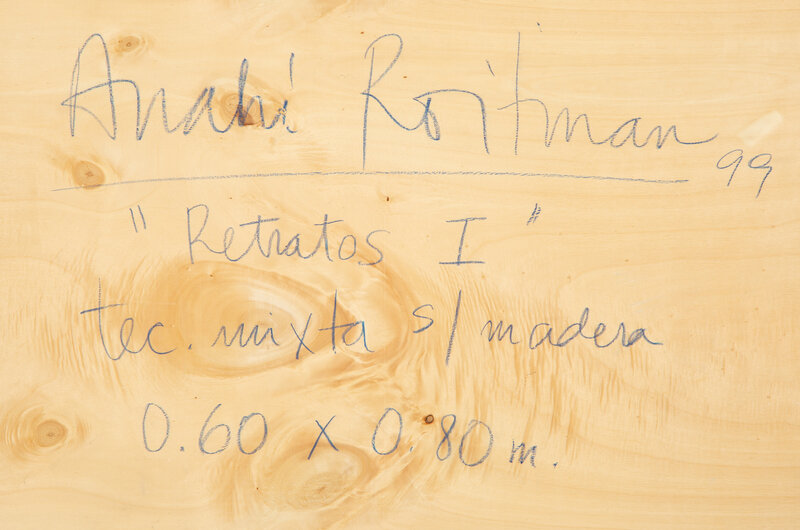 Anahi Roitman 99
"Retratos I"
tec. mixta s/madera
0.60 x 0.80 m.